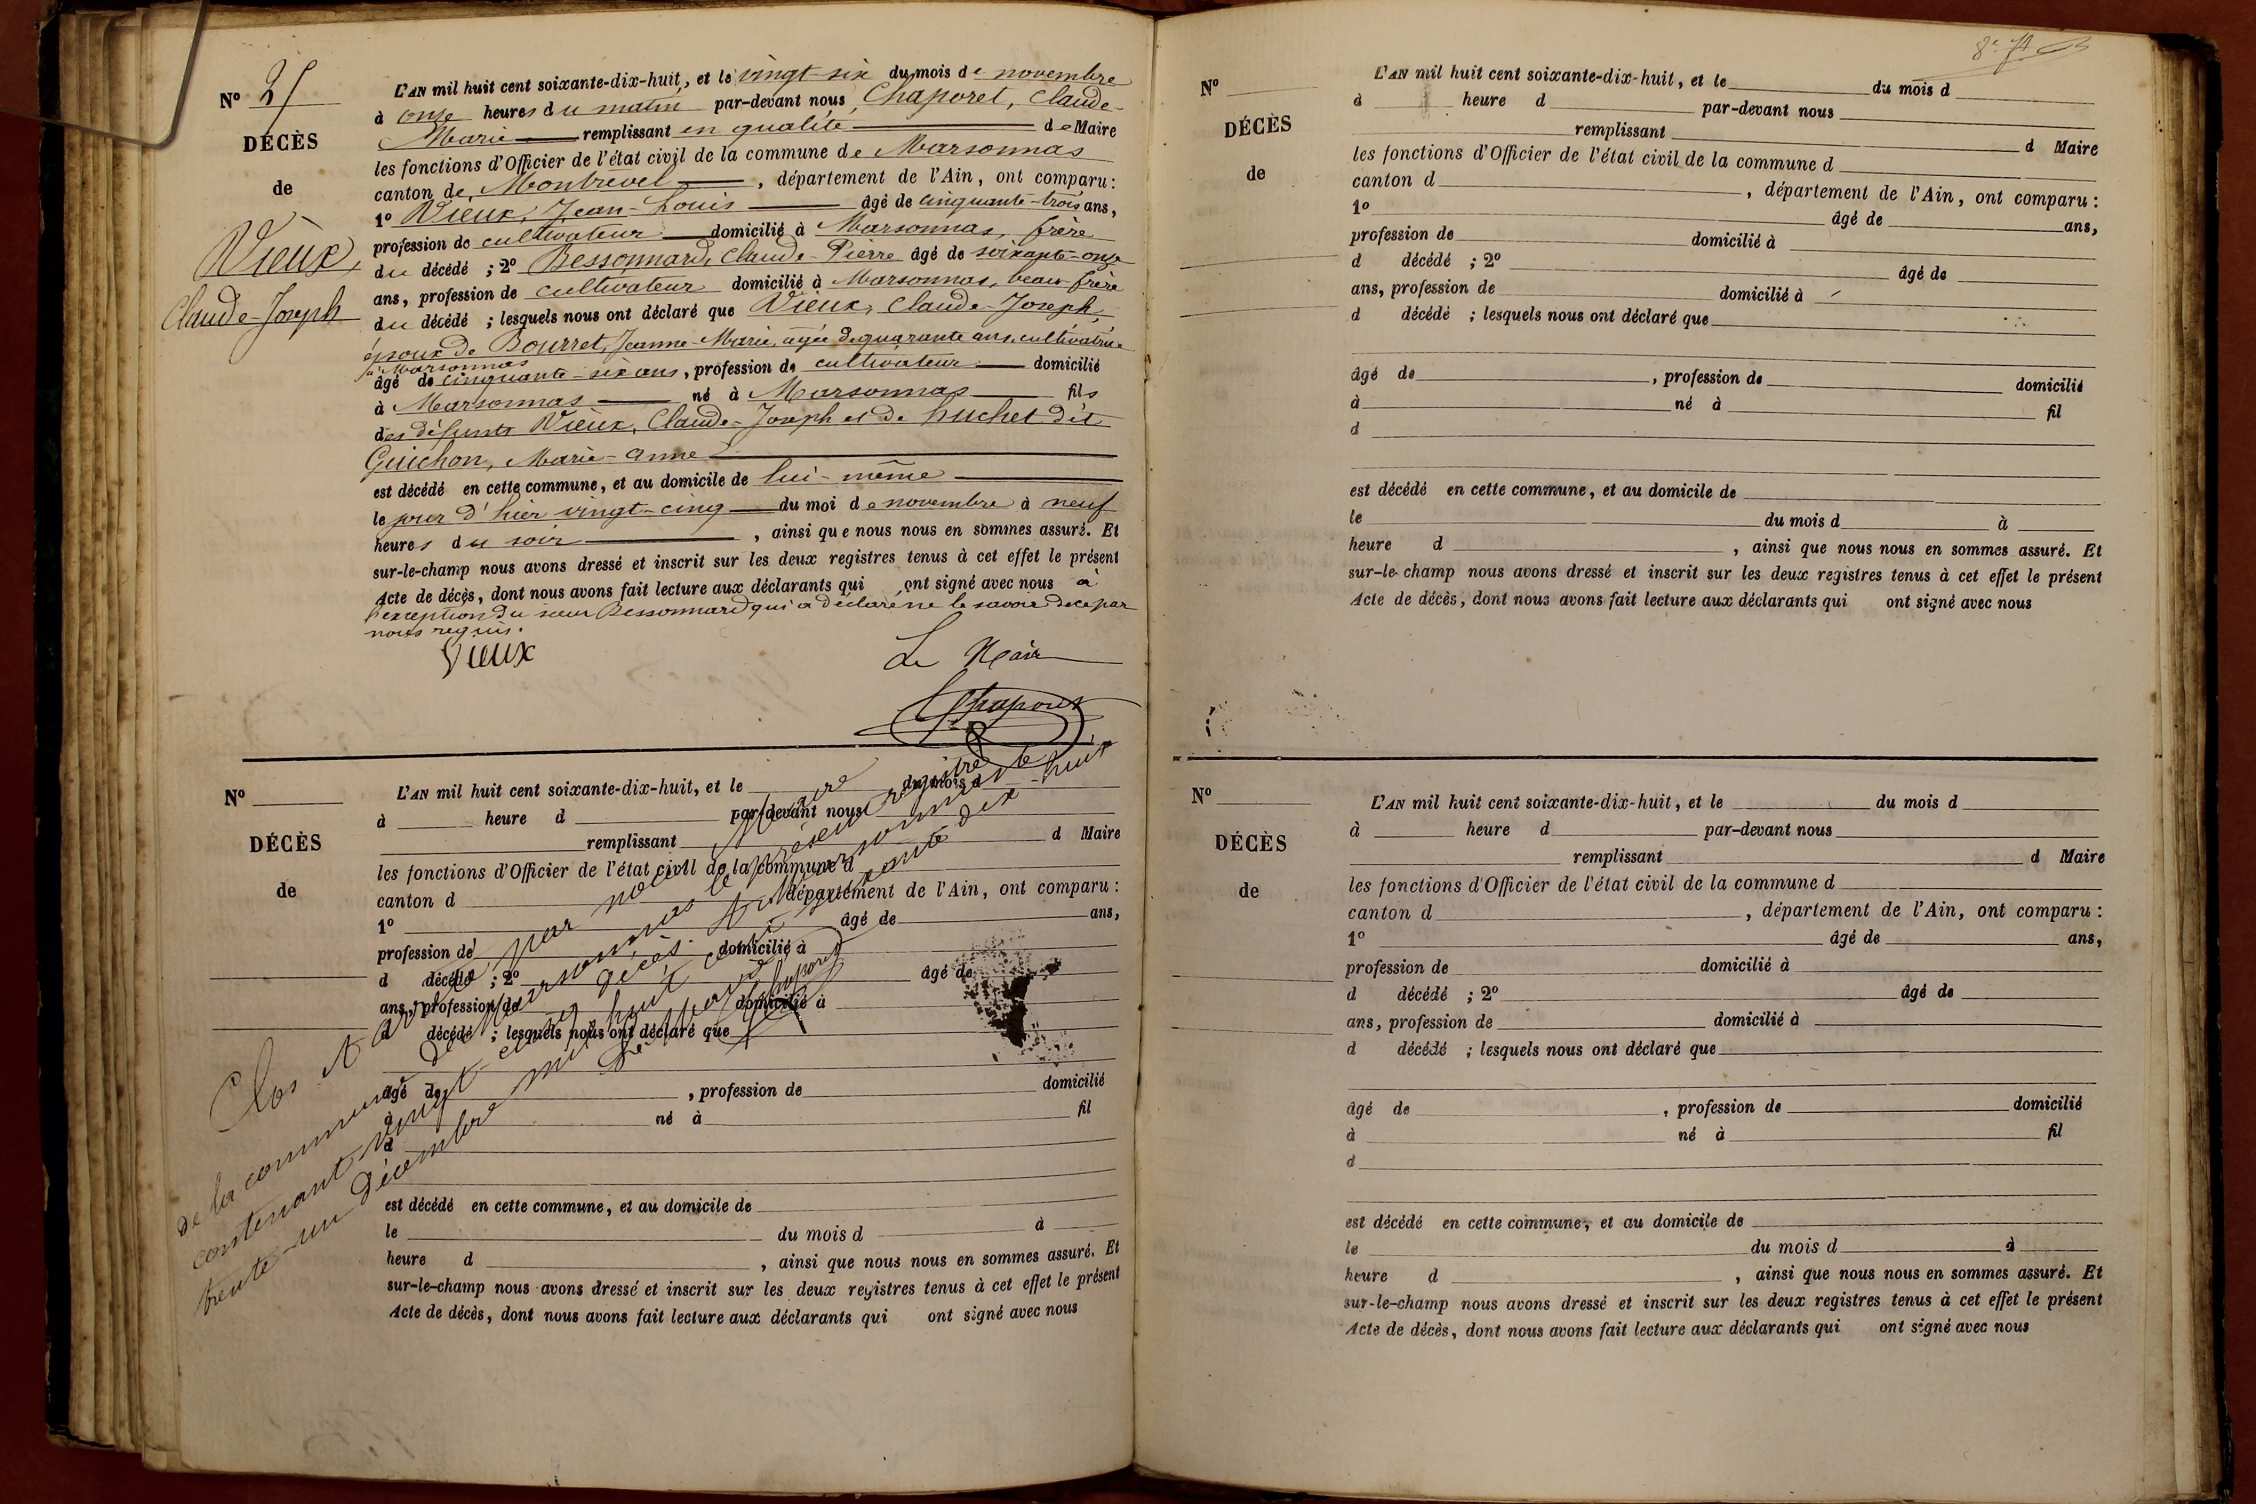 N° 25
DÉCÈS
de
Vieux,
Claude-Joseph
L'AN mil huit cent soixante-dix-huit, et le vingt-six du mois de novembre
à onze heures du matin par-devant nous Chaporel, Claude-
Marie remplissant en qualité de Maire
les fonctions d'Officier de l'état civil de la commune de Marsonnas
canton de Montrevel, département de l'Ain, ont comparu :
1° Vieux, Jean-Louis âgé de cinquante-trois ans,
profession de cultivateur domicilié à Marsonnas, frère
du décédé ; 2° Bessonnard, Claude-Pierre âgé de soixante-onze
ans, profession de cultivateur domicilié à Marsonnas, beau-frère
du décédé ; lesquels nous ont déclaré que Vieux, Claude-Joseph,
époux de Bourret, Jeanne-Marie, agée de quarante ans, cultivatrice
à Marsonnas
âgé de cinquante-six ans, profession de cultivateur domicilié
à Marsonnas né à Marsonnas fils
des défunts Vieux, Claude-Joseph et de Huchet dit
Guichon, Marie-Anne
est décédé en cette commune, et au domicile de lui-même
le jour d'hier vingt-cinq du moi de novembre à neuf
heures du soir, ainsi que nous nous en sommes assuré. Et
sur-le-champ nous avons dressé et inscrit sur les deux registres tenus à cet effet le présent
Acte de décès, dont nous avons fait lecture aux déclarants qui ont signé avec nous à
l'exception du sieur Bessonnard qui a déclaré ne le savoir de ce par
nous requis.
Vieux
Le Maire
Chaporel
N°
DÉCÈS
de
L'AN mil huit cent soixante-dix-huit, et le du mois d
à heure d par-devant nous
remplissant d Maire
les fonctions d'Officier de l'état civil de la commune d
canton d département de l'Ain, ont comparu :
1° âgé de ans,
profession de domicilié à
d décédé ; 2° âgé de
ans, profession de domicilié à
d décédé ; lesquels nous ont déclaré que
âgé de , profession de domicilié
à né à fil
d
est décédé en cette commune, et au domicile de
le du mois d à
heure d , ainsi que nous nous en sommes assuré. Et
sur-le-champ nous avons dressé et inscrit sur les deux registres tenus à cet effet le présent
Acte de décès, dont nous avons fait lecture aux déclarants qui ont signé avec nous
Clos et arrêté par nous Maire
de la commune de Marsonnas le présent registre
contenant vingt-cinq décès. A Marsonnas le
trente-un Décembre mil huit cent soixante dix-huit
Le Maire
Chaporel
N°
DÉCÈS
de
L'AN mil huit cent soixante-dix-huit, et le du mois d
à heure d par-devant nous
remplissant d Maire
les fonctions d'Officier de l'état civil de la commune d
canton d , département de l'Ain, ont comparu :
1° âgé de ans,
profession de domicilié à
d décédé ; 2° âgé de
ans, profession de domicilié à
d décédé ; lesquels nous ont déclaré que
âgé de , profession de domicilié
à né à fil
d
est décédé en cette commune, et au domicile de
le du mois d à
heure d , ainsi que nous nous en sommes assuré. Et
sur-le-champ nous avons dressé et inscrit sur les deux registres tenus à cet effet le présent
Acte de décès, dont nous avons fait lecture aux déclarants qui ont signé avec nous
N°
DÉCÈS
de
L'AN mil huit cent soixante-dix-huit, et le du mois d
à heure d par-devant nous
remplissant d Maire
les fonctions d'Officier de l'état civil de la commune d
canton d , département de l'Ain, ont comparu :
1° âgé de ans,
profession de domicilié à
d décédé ; 2° âgé de
ans, profession de domicilié à
d décédé ; lesquels nous ont déclaré que
âgé de , profession de domicilié
à né à fil
d
est décédé en cette commune, et au domicile de
le du mois d à
heure d , ainsi que nous nous en sommes assuré. Et
sur-le-champ nous avons dressé et inscrit sur les deux registres tenus à cet effet le présent
Acte de décès, dont nous avons fait lecture aux déclarants qui ont signé avec nous